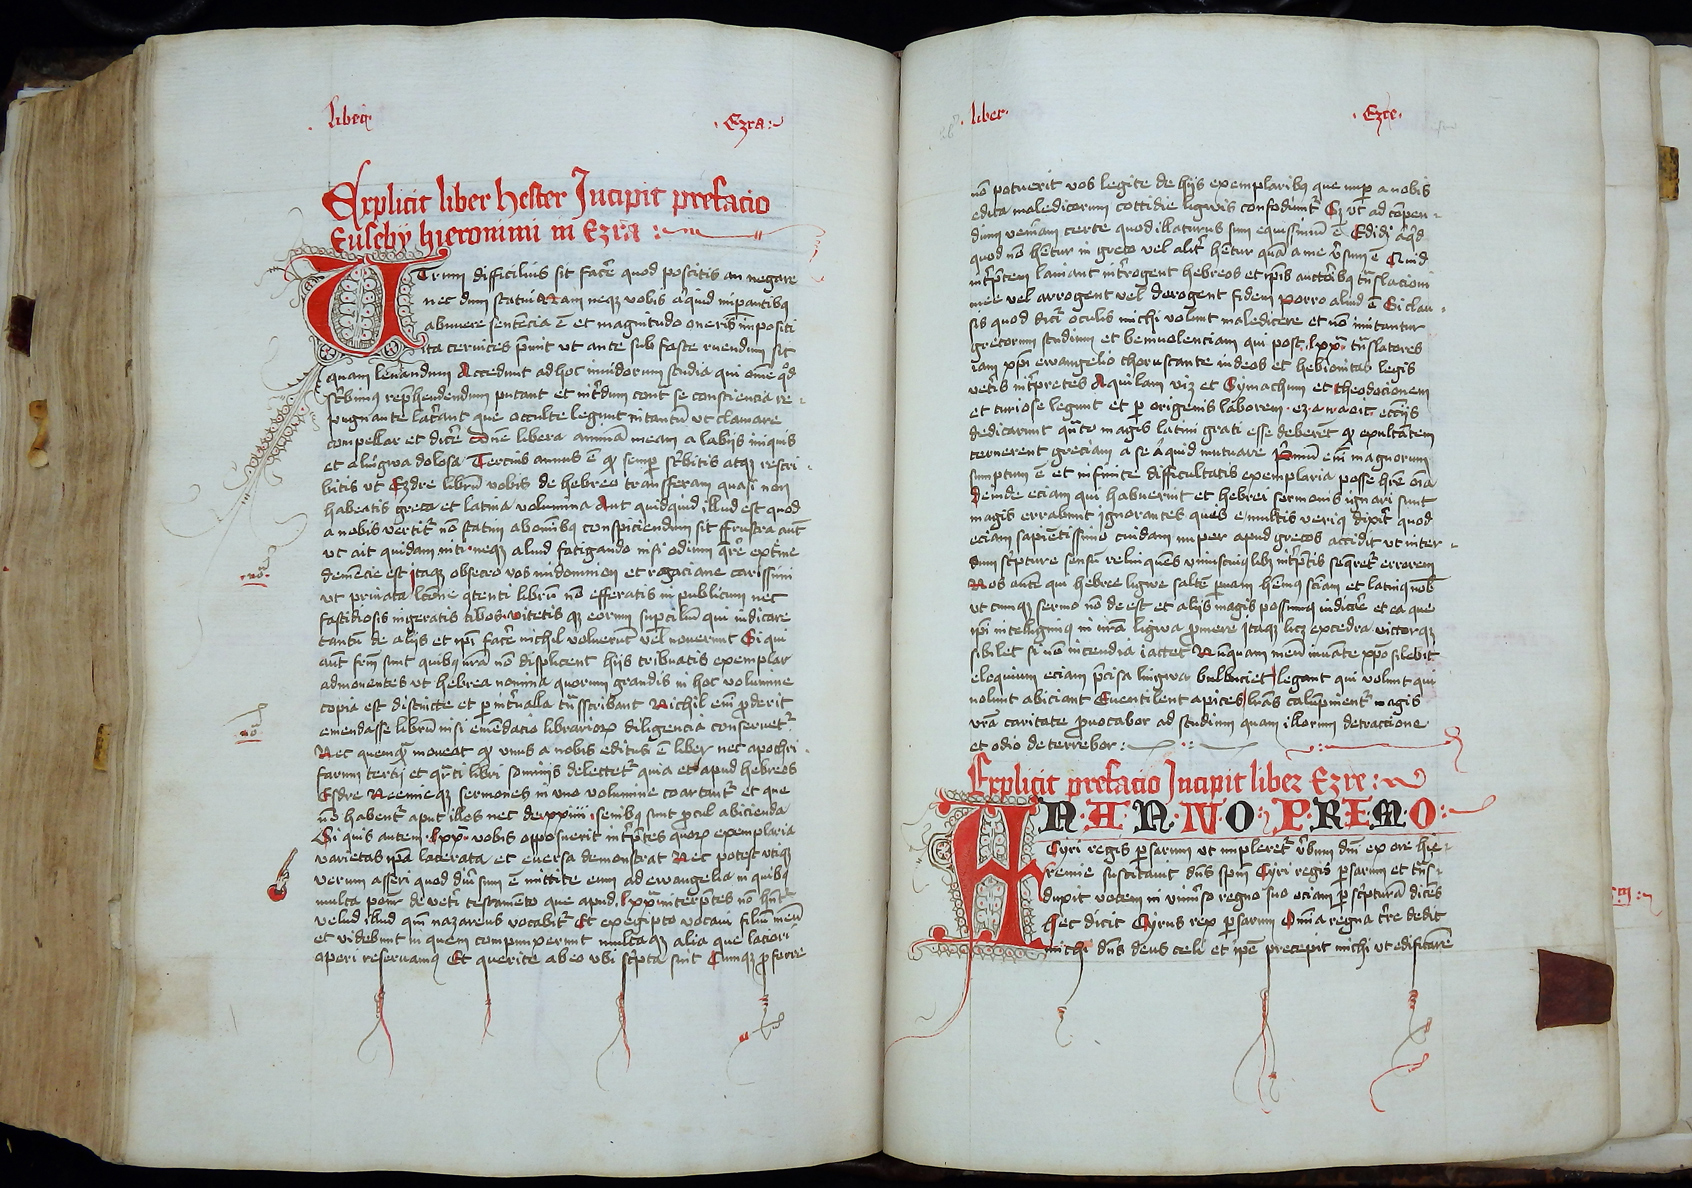 liber
Ezra
Explicit liber hester Incipit prefacio
Euseby hieronimi in Ezra
UTrum difficilius sit facere quod poscitis an negare
nec dum statui Nam neque vobis aliquid impantibus
abnuere sentencia ē et magnitudo oneris impositi
ita cervices premit ut ante sub fasce ruendum sit
quam levandum Accedunt ad hoc invidorum studia qui omne quod
scribimus reprehendendum putant et interdum contra se consciencia re-
pugnante lacerant que occulte legunt in tantum ut clamare
compellar et dicere Domine libera animam meam a labiis iniquis
et a lingwa dolosa Tercius annus ē quod semper scribitis atque rescri-
bitis ut Ezdre librum vobis de hebreo transferam quasi non
habeatis greca et latina volumina Aut quidquid illud est quod
a nobis vertitur non statim ab omnibus conspuendum sit Frustra aut
ut ait quidam niti neque aliud fatigando nisi odium querere extreme
demencie est Itaque obsecro vos mi domnion et rogaciane carissimi
ut privata lectione contenti librum non efferatis in publicum nec
fastidiosis ingeratis cibos vitetis que eorum supercilium qui iudicare
tantum de aliis et ipsi facere nichil noverunt Si qui
aut fratrum sunt quibus nostra non displicent hiis tribuatis exemplar
admonentes ut hebrea nomina quorum grandis in hoc volumine
copia est distincte et per intervalla transscribant Nichil enim proderit
emendasse librum nisi emendacio librariorum diligencia conservetur
Nec quemquam moveat quod unus a nobis editus ē liber nec apochri-
farum tertii et quarti libri somniis delectetur quia et apud hebreos
Esdre Neemieque sermones in uno volumine coartantur et que
non habentur aput illos nec de xxiiii senibus sunt procul abicienda
Si quis autem lxx vobis opposuerit interpretes quorum exemplaria
varietas ipsa lacerata et eversa demonstrat Nec potest utique
verum asseri quod diversum ē mittite eum ad ewangelia in quibus
multa ponuntur de veteri testamento que apud lxx interpretes non habentur
velud illud quoniam nazareus vocabitur Et ex egipto vocavi filium meum
et videbunt in quem compunxerunt multaque alia que laciori
operi reservamus Et querite ab eo ubi scripta sint Cumque proferre
liber
Ezre
non potuerit vos legite de hiis exemplaribus que nuper a nobis
edita maledicorum cottidie lingwis confodiuntur Sed ut ad compen-
dium veniam certe quod illaturus sum equissimum ē Edidi aliquid
quod non habetur in greco vel aliter habetur quam a me versum ē Quid
interpretem laniant interrogent hebreos et ipsis auctoribus translacioni
mee vel arrogent vel derogent fidem Porro aliud ē Si clau-
sis quod dicitur oculis michi volunt maledicere et non imitantur
grecorum studium et benivolenciam qui post lxx translatores
iam xpi ewangelio choruscante iudeos et hebionitas legis
veteris interpretes Aquilam viz et Symachum et theodocionem
et curiose legunt et per origenis laborem
dedicarunt quanto magis latini grati esse deberent quod exultantem
cernerent greciam a se aliquid mutuare Primum enim magnorum
sumptuum ē et infinite difficultatis exemplaria posse habere omnia
Deinde eciam qui habuerint et hebrei sermonis ignari sunt
magis errabunt ignorantes quis e multis verius dixerit quod
eciam sapientissimo cuidam nuper apud grecos accidit ut inter-
dum scripture sensum relinquens uniuscuiuslibet interpretis sequeretur errorem
Nos autem qui hebree lingwe saltem parvam habemus scienciam et latinus nobis
utcumque sermo non deest et de aliis magis possumus iudicare et ea que
ipsi intelligimus in nostra lingwa promere Itaque licet excedra victorque
sibilet si non incendia iactet Nunquam meum iuvante xpo silebit
eloquium eciam precisa lingwa bulbuciet legant qui volunt qui
nolunt abiciant Eventilent apices litteras calumpnientur magis
vestra caritate provocabor ad studium quam illorum detractione
et odio deterrebor
Explicit prefacio Incipit liber Ezre
IN ANNO PRIMO
Cyri regis persarum ut impleretur verbum domini ex ore hie-
remie suscitavit dominus spiritum Cyri regis persarum et trans-
duxit vocem in universo regno suo eciam per scripturam dicens
Hec dicit Cyrus rex persarum Omnia regna terre dedit
michi dominus deus celi et ipse precepit michi ut edificarem